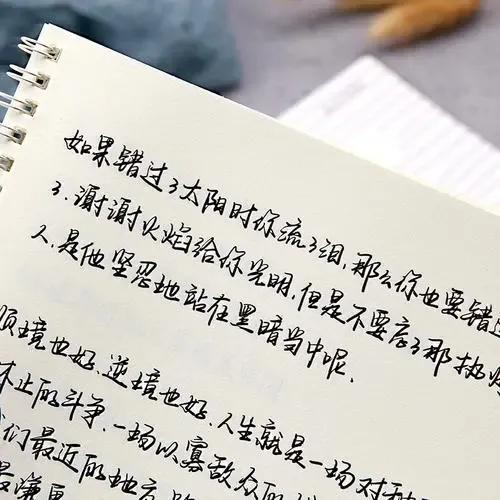 如果错过了太阳时你流了泪,那么你也要错过
了.谢谢火焰给你光明,但是不要忘了那执灯
人,是他坚忍地站在黑暗当中呢.
顺境也好,逆境也好,人生就是一场对种
休止的斗争,一场以寡敌众的
们最近的地方
最廉更